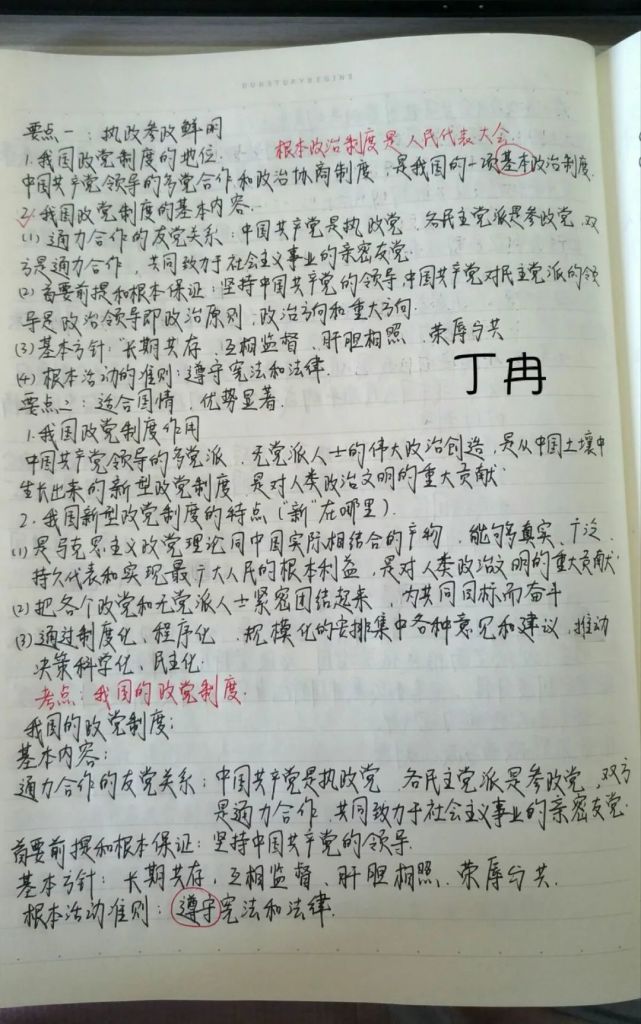 OURSTORYBEGINS
要点一：执政参政鲜明
根本政治制度是人民代表大会
1.我国政党制度的地位.
中国共产党领导的多党合作和政治协商制度，是我国的一项基本政治制度.
2.我国政党制度的基本内容.
(1)通力合作的友党关系：中国共产党是执政党，各民主党派是参政党，双
方是通力合作，共同致力于社会主义事业的亲密友党.
(2)首要前提和根本保证：坚持中国共产党的领导，中国共产党对民主党派的领
导是政治领导即政治原则、政治方向和重大方向.
(3)基本方针：长期共存、互相监督、肝胆相照、荣辱与共
(4)根本活动的准则：遵守宪法和法律.
丁冉
要点二：适合国情，优势显著.
1.我国政党制度作用
中国共产党领导的多党派、无党派人士的伟大政治创造，是从中国土壤中
生长出来的新型政党制度，是对人类政治文明的重大贡献.
2.我国新型政党制度的特点（"新"在哪里）.
(1)是马克思主义政党理论同中国实际相结合的产物，能够真实、广泛、
持久代表和实现最广大人民的根本利益，是对人类政治文明的重大贡献.
(2)把各个政党和无党派人士紧密团结起来，为共同目标而奋斗
(3)通过制度化、程序化、规模化的安排集中各种意见和建议，推动
决策科学化、民主化.
考点：我国的政党制度.
我国的政党制度：
基本内容：
通力合作的友党关系：中国共产党是执政党，各民主党派是参政党，双方
是通力合作，共同致力于社会主义事业的亲密友党.
首要前提和根本保证：坚持中国共产党的领导.
基本方针：长期共存、互相监督、肝胆相照、荣辱与共.
根本活动准则：遵守宪法和法律.